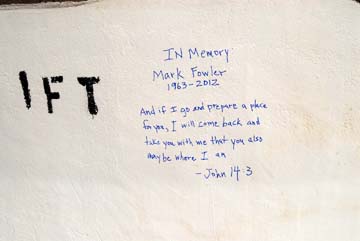 IFT
IN Memory
Mark Fowler
1963-2012
And if I go and prepare a place
for you, I will come back and
take you with me that you also
may be where I am
- John 14:3